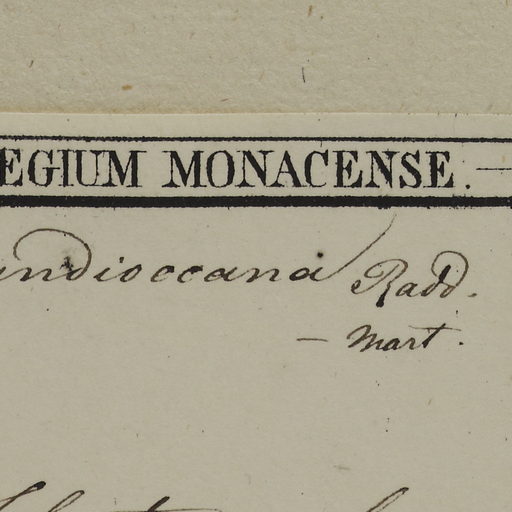 EGIUM MONACENSE.
undioccana Radd.
— Mart.